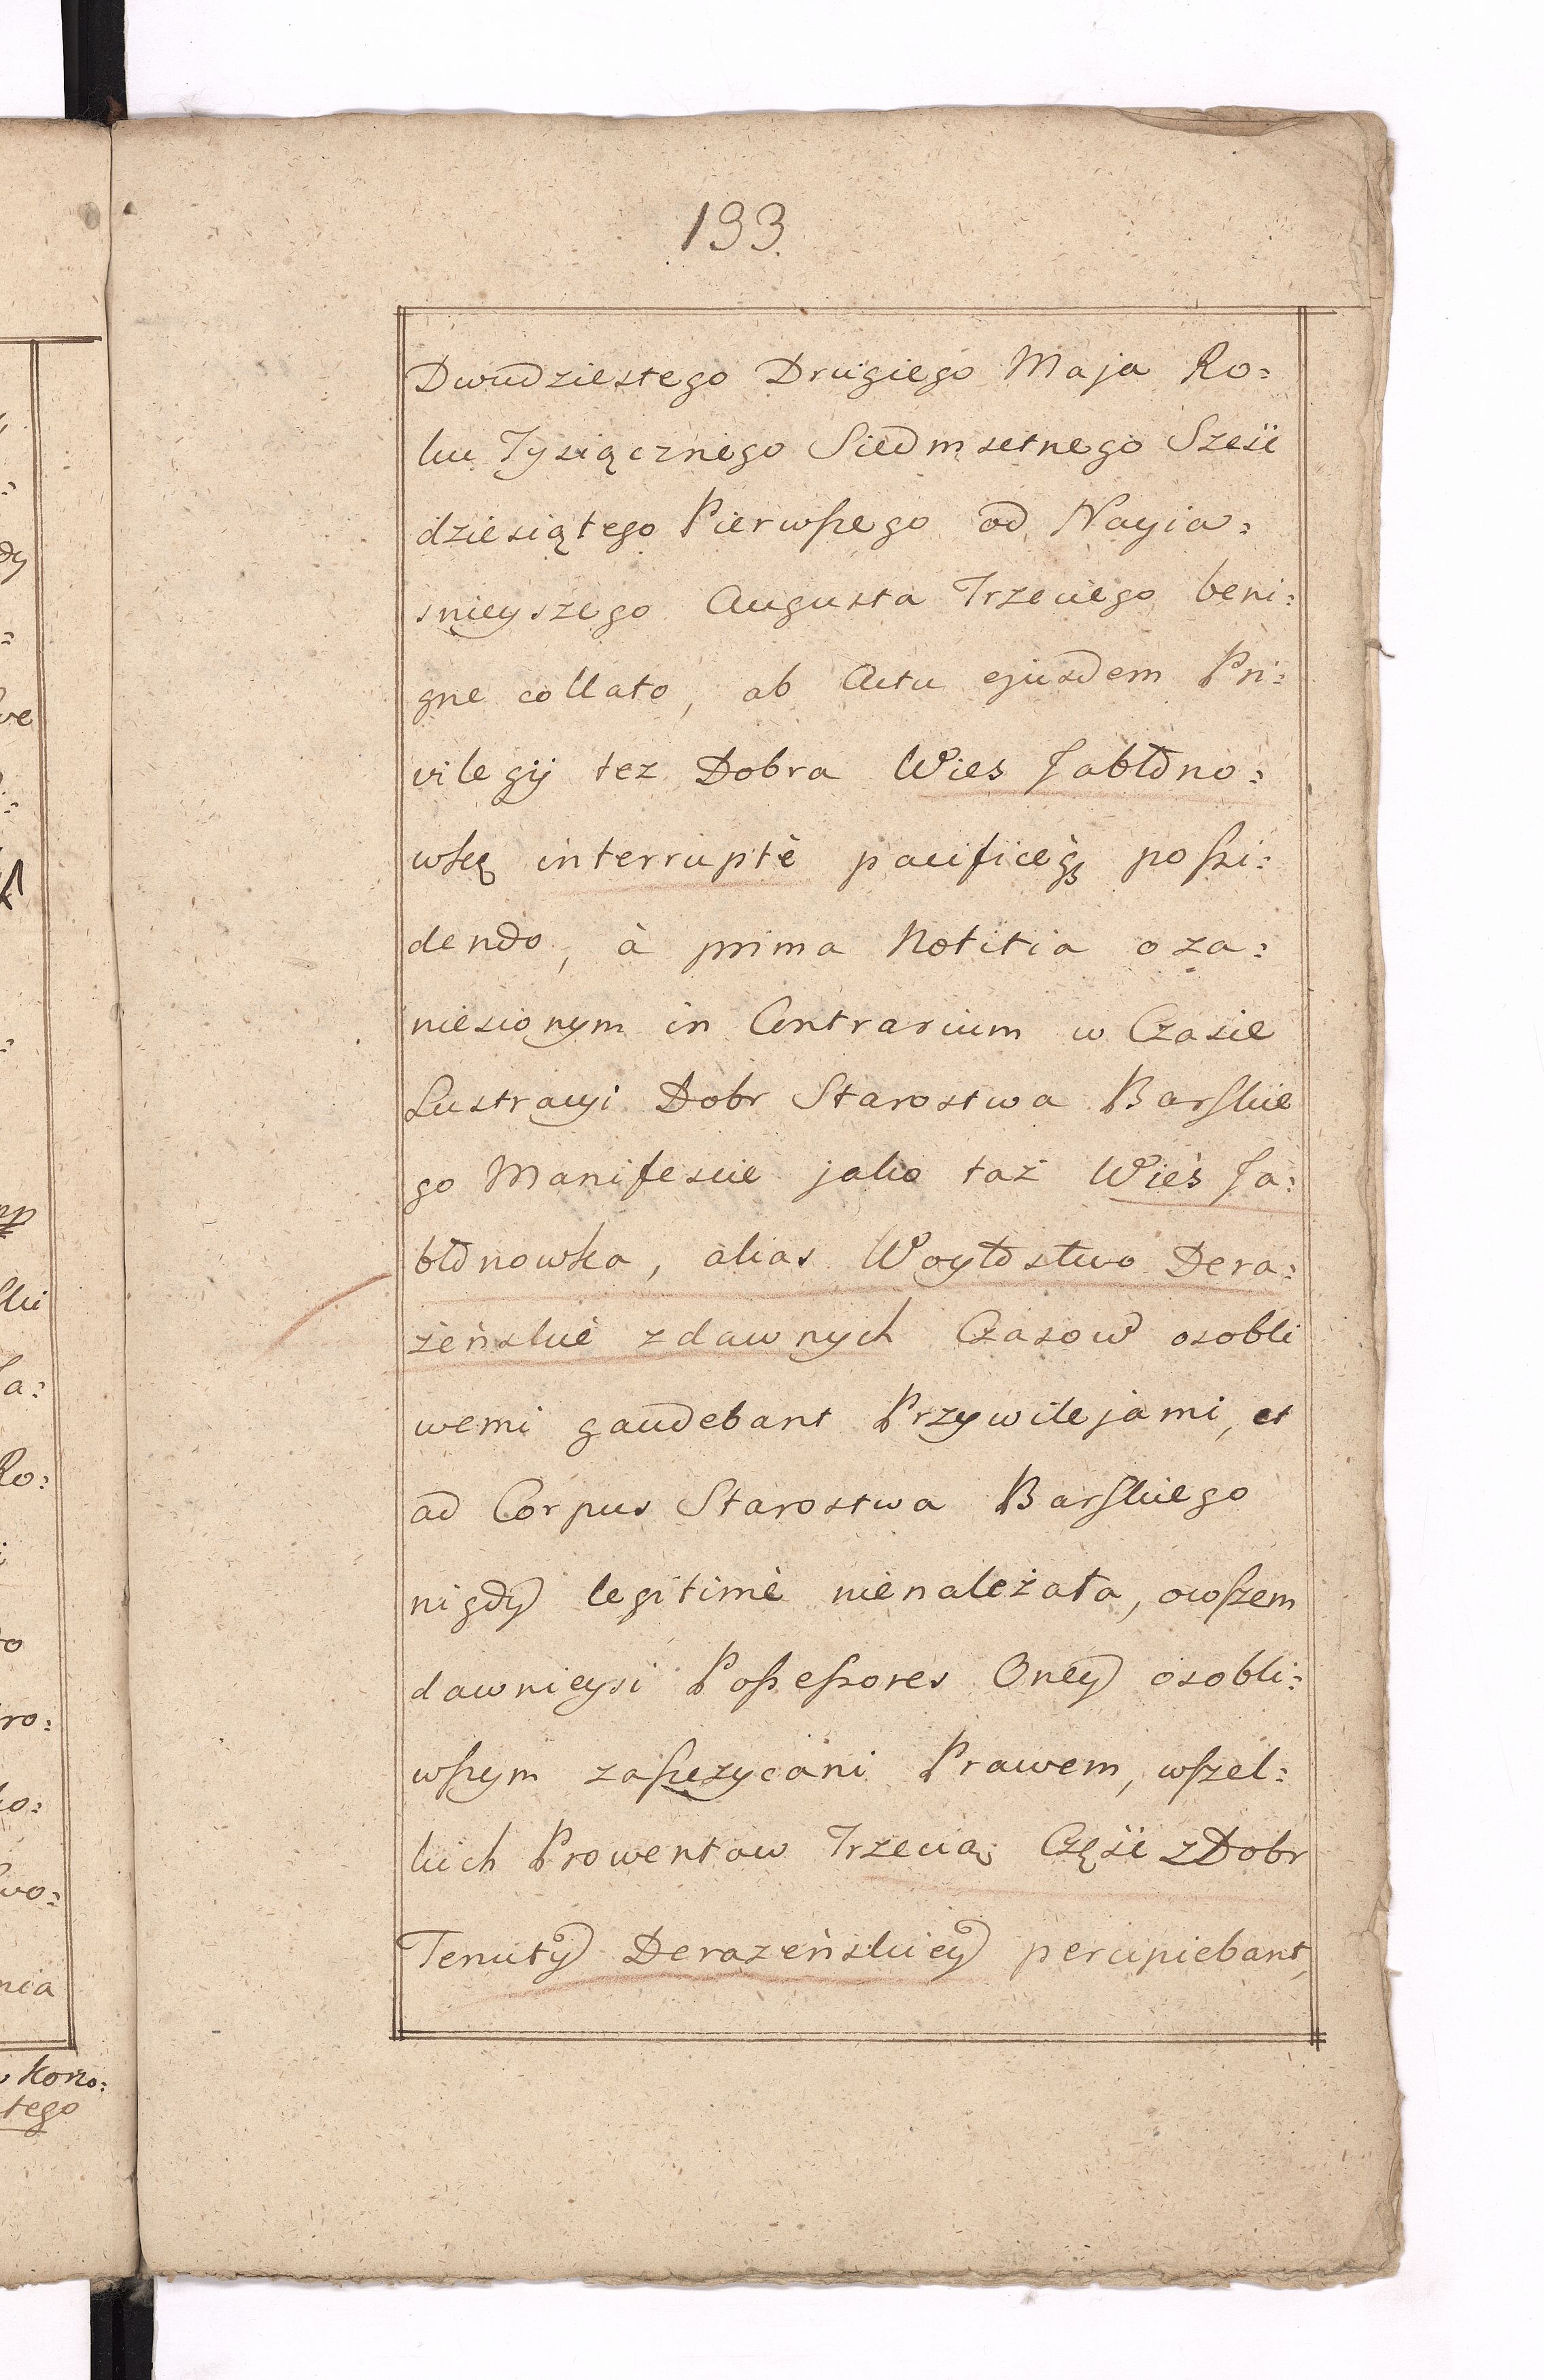 193.
Dwudziestego Drugiego Maja Ro:
ku Tysiącznego Siedmsetnego Sześć
dziesiątego Pierwszego od Nayia:
snieyszego Augusta Trzeciego beni:
gne collato, ab Actu ejusdem Pri:
vilegÿ tez Dobra Wies Jabłono:
wkę interruptè pacificèq possi:
dendo, à prima Notitia o za:
niesionym in Contrarium w Czasie
Lustracyi Dobr Starostwa Barskie
go Manifescie jako taż Wieś Ja:
błonowka, alias Woytostwo Dera:
żeńskie z dawnych Czasow osobli
wemi gaudebant Przywilejami, et
ad Corpus Starostwa Barskiego
nigdy legitimè nienależała, owszem
dawnieysi Possessores Oney osobli:
wszym zaszczycani Prawem, wszel:
kich Prowentow Trzecią Część z Dobr
Tenuty Derazeńskiey percipiebant,